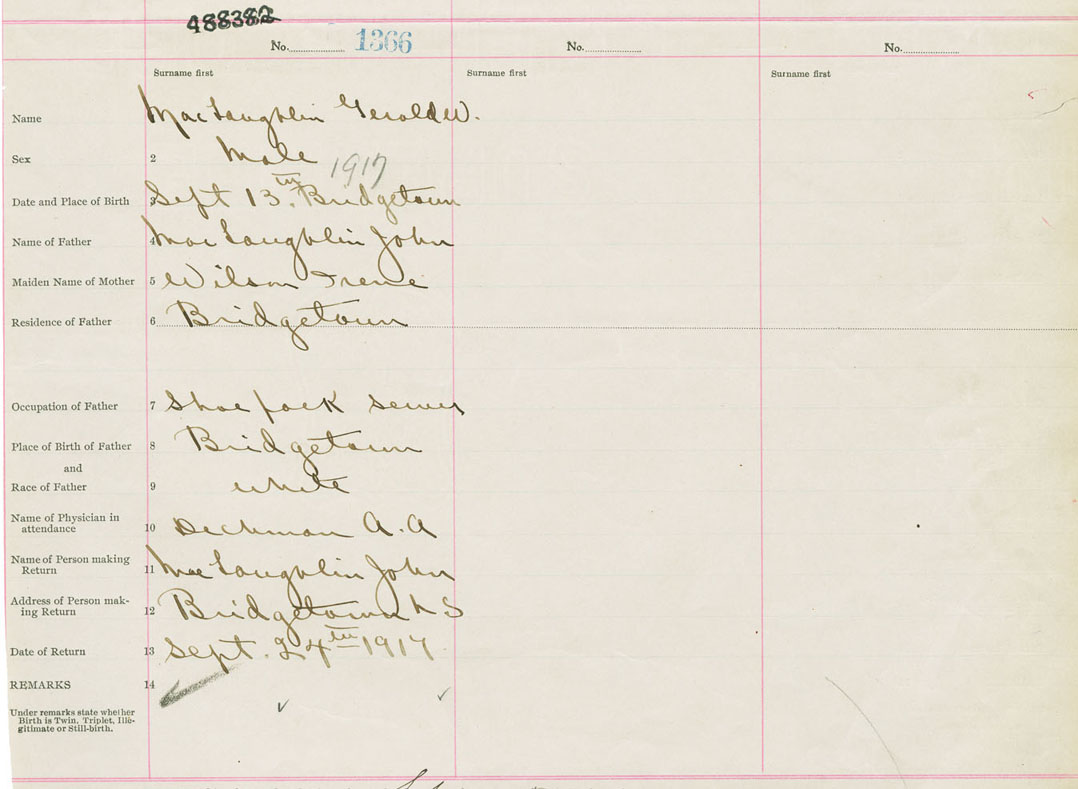 488382
No. 1366 No. No.
Surname first Surname first Surname first
Name MacLaughlin Gerald W.
Sex 2 Male
1917
Date and Place of Birth 3 Sept 13th. Bridgetown
Name of Father 4 MacLaughlin John
Maiden Name of Mother 5 Wilson Irene
Residence of Father 6 Bridgetown
Occupation of Father 7 Shoe pack sewer
Place of Birth of Father 8 Bridgetown
and
Race of Father 9 white
Name of Physician in
attendance 10 Dechman A. A
Name of Person making
Return 11 MacLaughlin John
Address of Person mak-
ing Return 12 Bridgetown N S
Date of Return 13 Sept. 24th 1917
REMARKS 14
Under remarks state whether
Birth is Twin, Triplet, Ille-
gitimate or Still-birth.